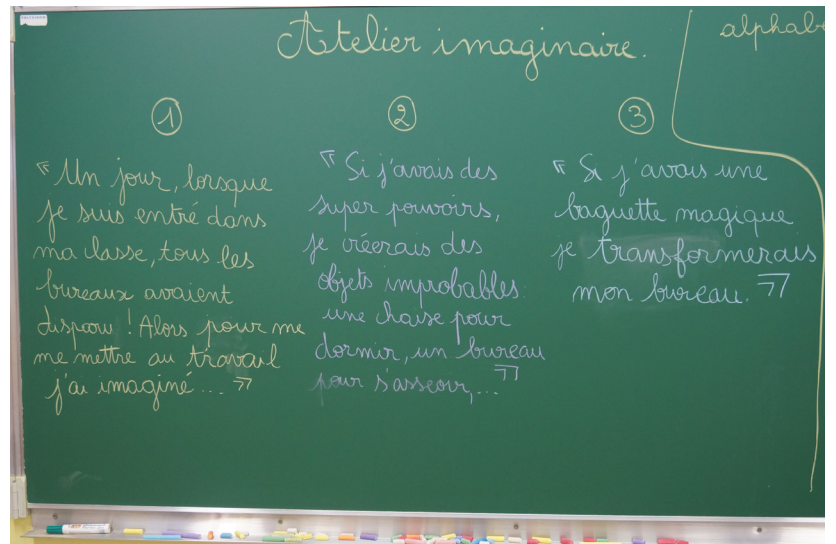 Atelier imaginaire.
alphabe
1
« Un jour, lorsque
je suis entré dans
ma classe, tous les
bureaux avaient
disparu ! Alors pour me
me mettre au travail
j'ai imaginé ... »
2
« Si j'avais des
super pouvoirs,
je créerais des
objets improbables :
une chaise pour
dormir, un bureau
pour s'asseoir, ... »
3
« Si j'avais une
baguette magique
je transformerais
mon bureau. »